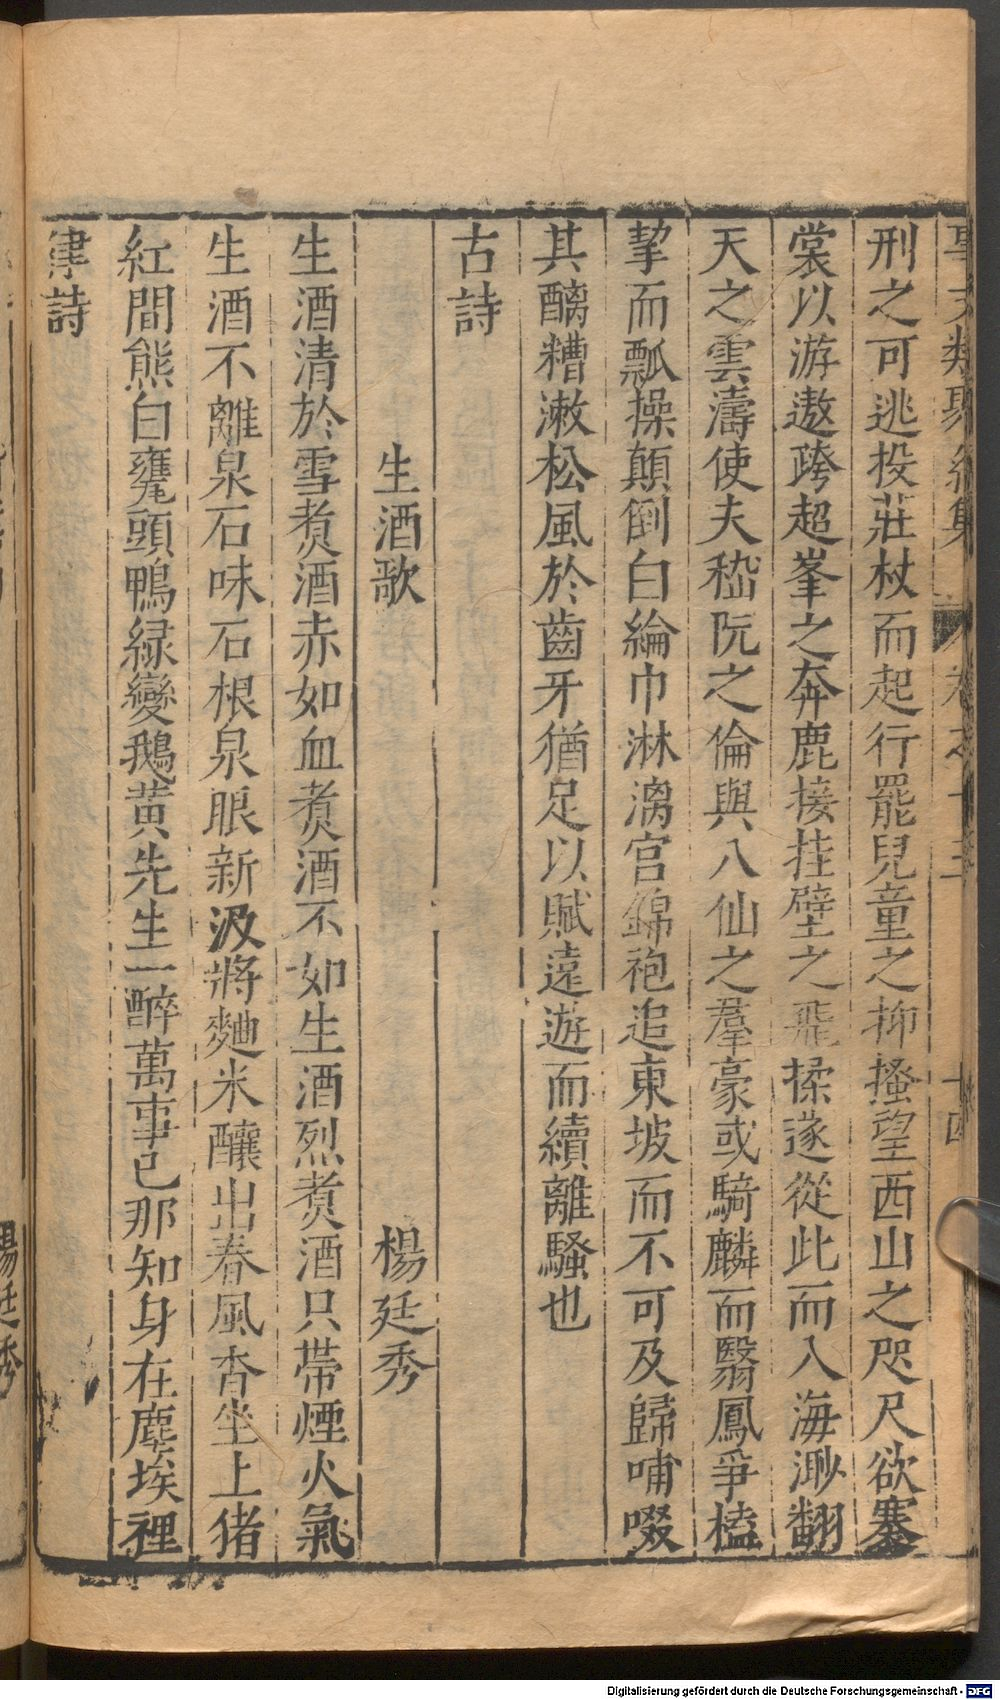 事文類聚續集 卷之十三 十四
刑之可逃投莊杖而起行罷兒童之抑搔望西山之咫尺欲褰
裳以游遨跨超峯之奔鹿接挂壁之飛猱遂從此而入海渺翻
天之雲濤使夫嵇阮之倫與八仙之羣豪或騎麟而翳鳳爭榼
挈而瓢操顛倒白綸巾淋漓宮錦袍追東坡而不可及歸哺啜
其醨糟漱松風於齒牙猶足以賦遠遊而續離騷也
古詩
生酒歌 楊廷秀
生酒清於雪煑酒赤如血煑酒不如生酒烈煑酒只帶煙火氣
生酒不離泉石味石根泉眼新汲將麯米釀出春風香坐上猪
紅間熊白甕頭鴨緑變鵝黃先生一醉萬事已那知身在塵埃裡
律詩
楊廷秀
Digitalisierung gefördert durch die Deutsche Forschungsgemeinschaft - DFG